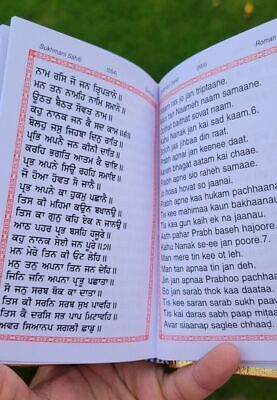 Sukhmani Sahib
ਨਾਮ ਰਸਿ ਜੋ ਜਨ ਤ੍ਰਿਪਤਾਨੇ ॥
ਮਨ ਤਨ ਨਾਮਹਿ ਨਾਮਿ ਸਮਾਨੇ ॥
ਊਠਤ ਬੈਠਤ ਸੋਵਤ ਨਾਮ ॥
ਕਹੁ ਨਾਨਕ ਜਨ ਕੈ ਸਦ ਕਾਮ ॥
ਬੋਲਹੁ ਜਸੁ ਜਿਹਬਾ ਦਿਨੁ ਰਾਤਿ ॥
ਪ੍ਰਭਿ ਅਪਨੈ ਜਨ ਕੀਨੀ ਦਾਤਿ ॥
ਕਰਹਿ ਭਗਤਿ ਆਤਮ ਕੈ ਚਾਇ ॥
ਪ੍ਰਭ ਅਪਨੇ ਸਿਉ ਰਹਹਿ ਸਮਾਇ ॥
ਜੋ ਹੋਆ ਹੋਵਤ ਸੋ ਜਾਨੈ ॥
ਪ੍ਰਭ ਅਪਨੇ ਕਾ ਹੁਕਮੁ ਪਛਾਨੈ ॥
ਤਿਸ ਕੀ ਮਹਿਮਾ ਕਉਨ ਬਖਾਨਉ ॥
ਤਿਸ ਕਾ ਗੁਨੁ ਕਹਿ ਏਕ ਨ ਜਾਨਉ ॥
ਆਠ ਪਹਰ ਪ੍ਰਭ ਬਸਹਿ ਹਜੂਰੇ ॥
ਕਹੁ ਨਾਨਕ ਸੇਈ ਜਨ ਪੂਰੇ ॥੭॥
ਮਨ ਮੇਰੇ ਤਿਨ ਕੀ ਓਟ ਲੇਹਿ ॥
ਮਨੁ ਤਨੁ ਅਪਨਾ ਤਿਨ ਜਨ ਦੇਹਿ ॥
ਜਿਨਿ ਜਨਿ ਅਪਨਾ ਪ੍ਰਭੂ ਪਛਾਤਾ ॥
ਸੋ ਜਨੁ ਸਰਬ ਥੋਕ ਕਾ ਦਾਤਾ ॥
ਤਿਸ ਕੀ ਸਰਨਿ ਸਰਬ ਸੁਖ ਪਾਵਹਿ ॥
ਤਿਸ ਕੈ ਦਰਸਿ ਸਭ ਪਾਪ ਮਿਟਾਵਹਿ ॥
ਅਵਰ ਸਿਆਨਪ ਸਗਲੀ ਛਾਡੁ ॥
Roman
ras je jan triptaane.
tan Naameh naam samaane.
baithat sovat naam.
Kahu Nanak jan kai sad kaam.6.
jas jihbaa din raat.
apnai jan keenee daat.
bhagat aatam kai chaae.
Prabh apne sio raheh samaae.
hoaa hovat so jaanai.
Prabh apne kaa hukam pachhaanai
Tis kee mahimaa kaun bakhaanau.
Tis kaa gun kaih ek na jaanau.
Aath pahar Prabh baseh hajoore.
Kahu Nanak se-ee jan poore.7.
Man mere tin kee ot leh.
Man tan apnaa tin jan deh.
Jin jan apnaa Prabhoo pachhaa
So jan sarab thok kaa daataa.
Tis kee saran sarab sukh paav
Tis kai daras sabh paap mitaa
Avar siaanap saglee chhaad.